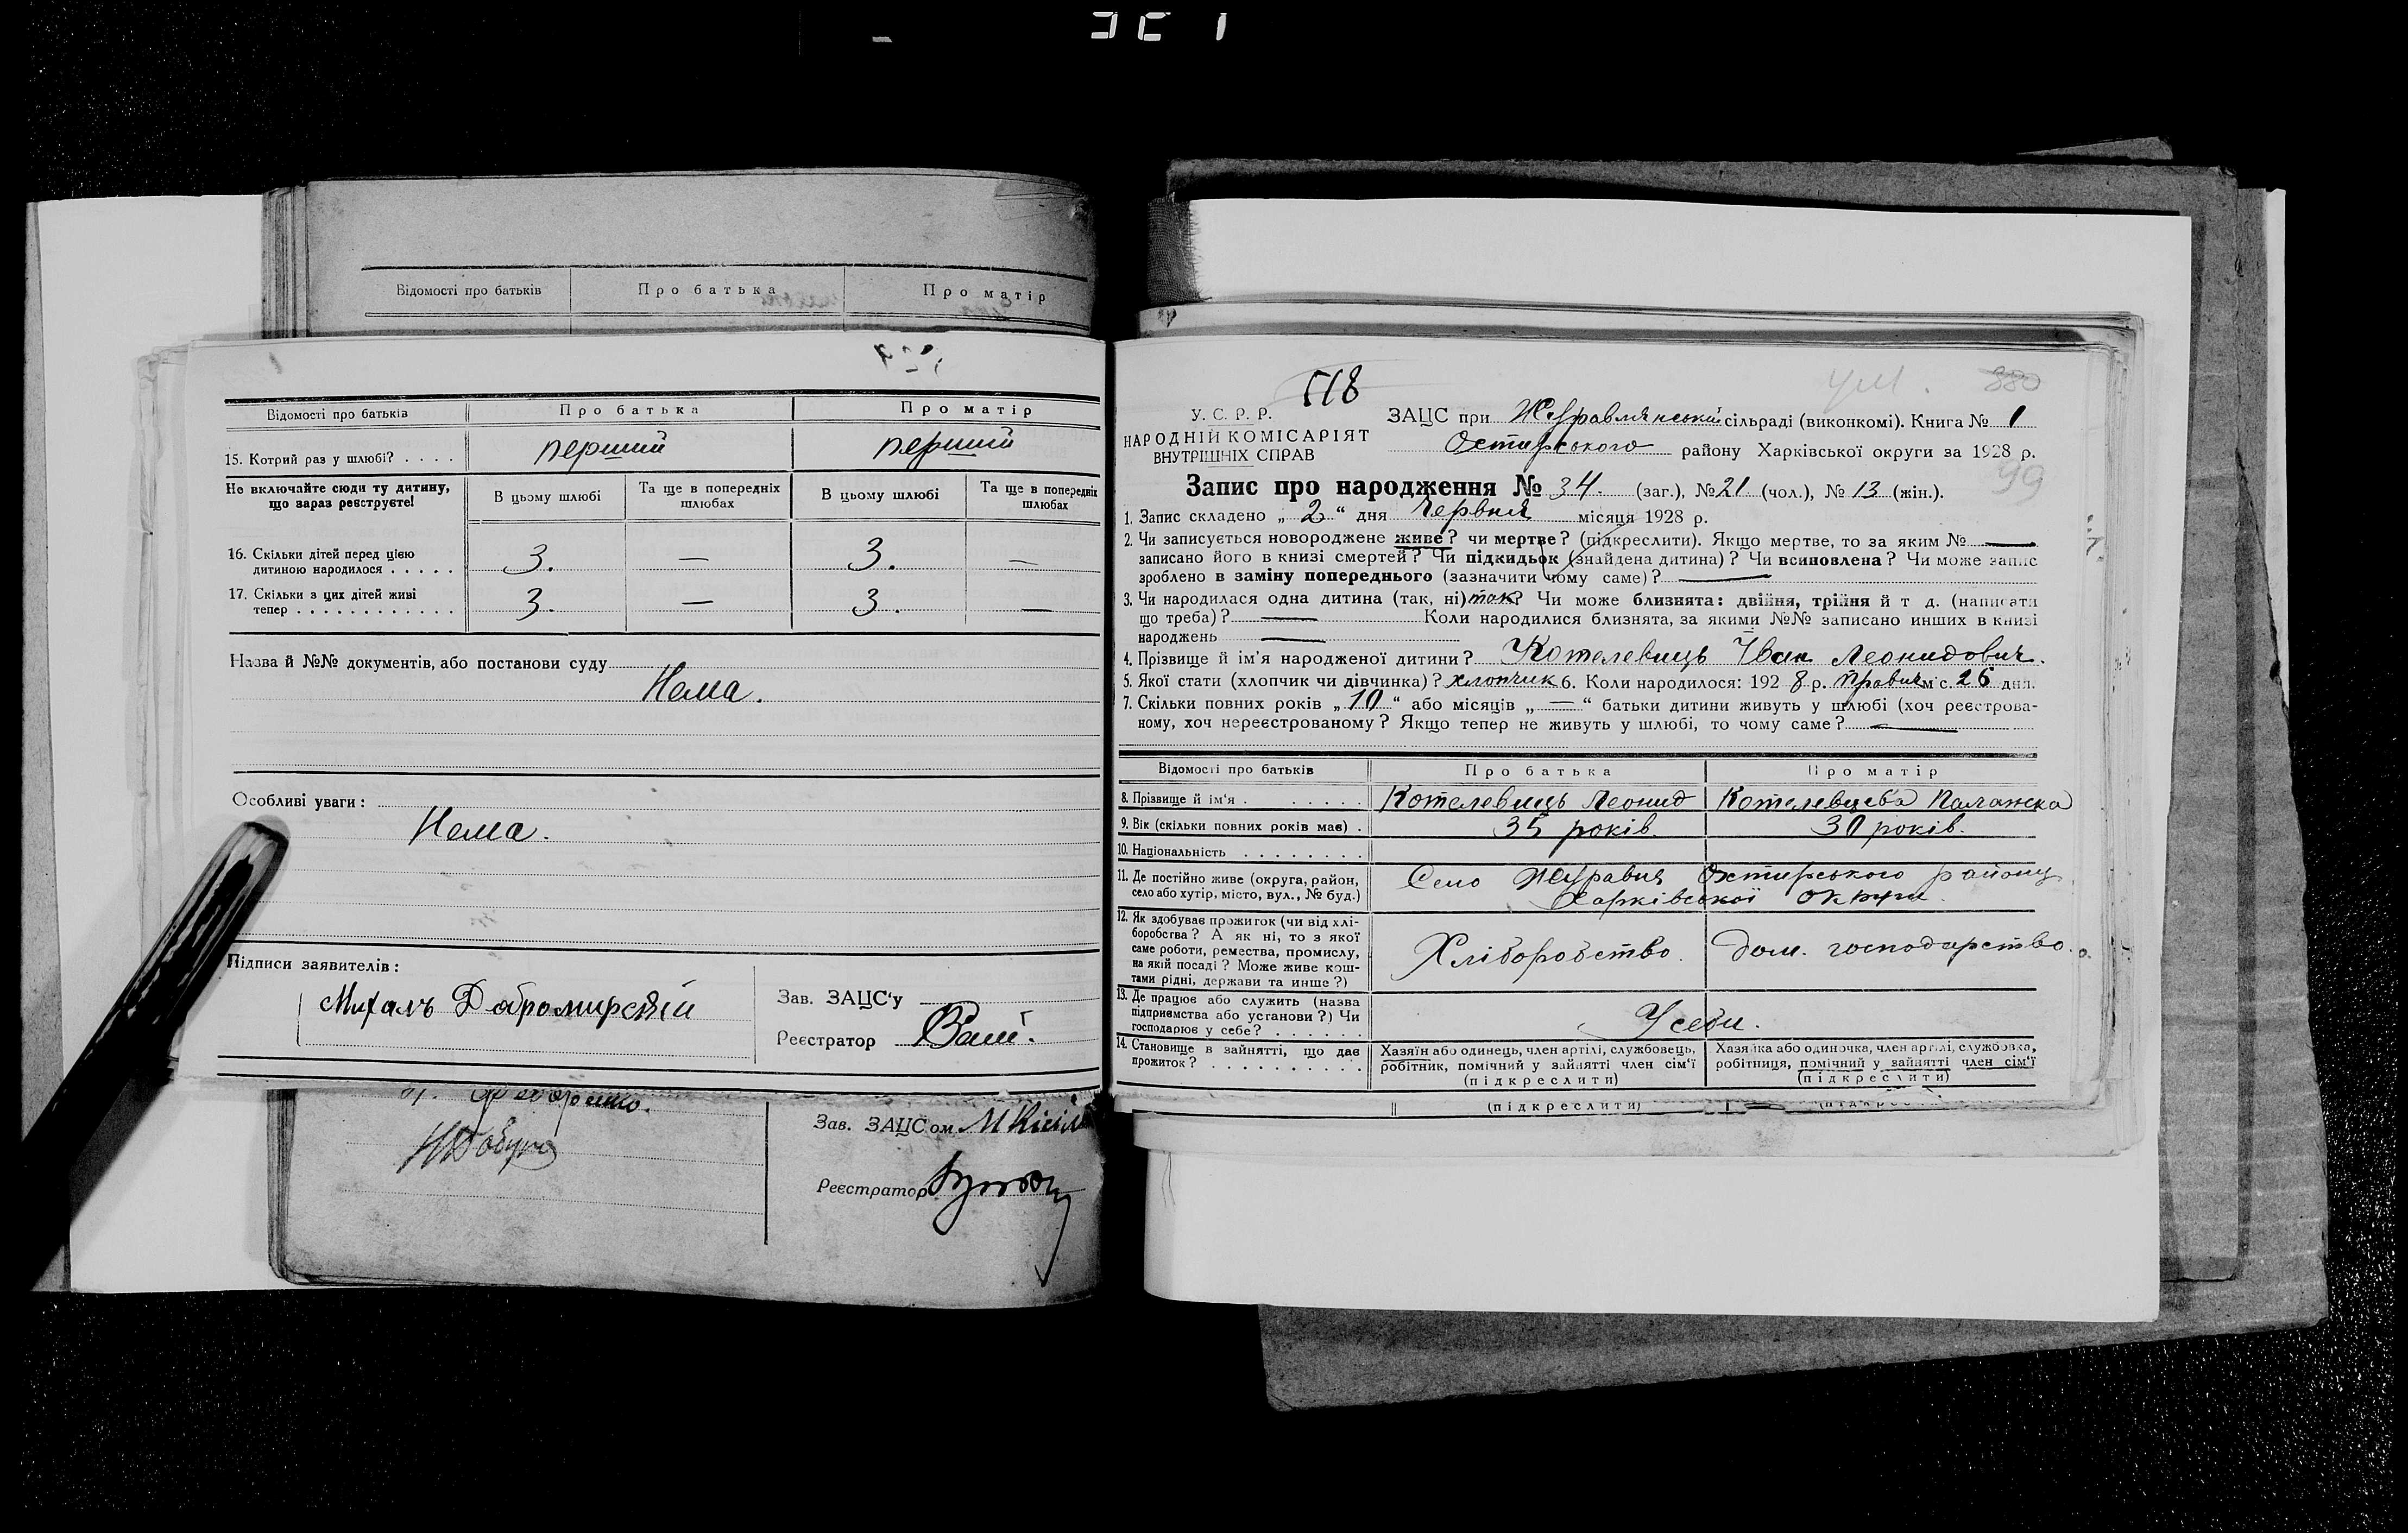 Відомості про батьків Про батька Про матір
Відомості про батьків Про батька Про матір
15. Котрий раз у шлюбі? . . . . перший перший
Не включайте сюди ту дитину, що зараз реєструєте! В цьому шлюбі Та ще в попередніх шлюбах В цьому шлюбі Та ще в попередніх шлюбах
16. Скільки дітей перед цією
дитиною народилося . . . . . 3. — 3. —
17. Скільки з цих дітей живі
тепер . . . . . . . . . . . . 3. — 3. —
Назва й №№ документів, або постанови суду
Нема.
Особливі уваги:
Нема.
Підписи заявителів:
Зав. ЗАЦС'у
Михалъ Добромирскій
Реєстратор
Зав. ЗАЦСом
Реєстратор
518
880
У. С. Р. Р.
НАРОДНІЙ КОМІСАРІЯТ
ВНУТРІШНІХ СПРАВ
ЗАЦС при Журавлянській сільраді (виконкомі). Книга № 1
району Харківської округи за 1928 р.
99
Запис про народження № 34. (заг.), № 21 (чол.), № 13 (жін.).
1. Запис складено „ 2 “ дня Червня місяця 1928 р.
2. Чи записується новороджене живе? чи мертве? (підкреслити). Якщо мертве, то за яким № —
записано його в книзі смертей? Чи підкидьок (знайдена дитина)? Чи всиновлена? Чи може запис
зроблено в заміну попереднього (зазначити чому саме)? —
3. Чи народилася одна дитина (так, ні) так? Чи може близнята: двійня, трійня й т д. (написати
що треба)? — Коли народилися близнята, за якими №№ записано инших в книзі
народжень —
4. Прізвище й ім'я народженої дитини? Котелевець Іван Леонидович.
5. Якої стати (хлопчик чи дівчинка)? хлопчик 6. Коли народилося: 1928 р. Травня м'с. 26 дня.
7. Скільки повних років „ 10 “ або місяців „ — “ батьки дитини живуть у шлюбі (хоч реєстрова-
ному, хоч нереєстрованому? Якщо тепер не живуть у шлюбі, то чому саме? —
Відомості про батьків Про батька Про матір
8. Прізвище й ім'я . . . . . . Котелевець Леонид Котелевцева Палажка
9. Вік (скільки повних років має) . 35 років. 30 років.
10. Національність . . . . . . . .
11. Де постійно живе (округа, район,
село або хутір, місто, вул., № буд.) Село Журавня Охтирського району
Харківської округи
12. Як здобуває прожиток (чи від хлі-
боробства? А як ні, то з якої
саме роботи, ремества, промислу,
на якій посаді? Може живе кош-
тами рідні, держави та инше?) Хліборобство. дом. господарство.
13. Де працює або служить (назва
підприємства або установи?) Чи
господарює у себе? . . . . . . У себе.
14. Становище в зайнятті, що дає
прожиток? . . . . . . . . . .
Хазяїн або одинець, член артілі, службовець,
робітник, помічний у зайнятті член сім'ї
(підкреслити)
Хазяйка або одиночка, член артілі, службовка,
робітниця, помічний у зайнятті член сім'ї
(підкреслити)
(підкреслити)